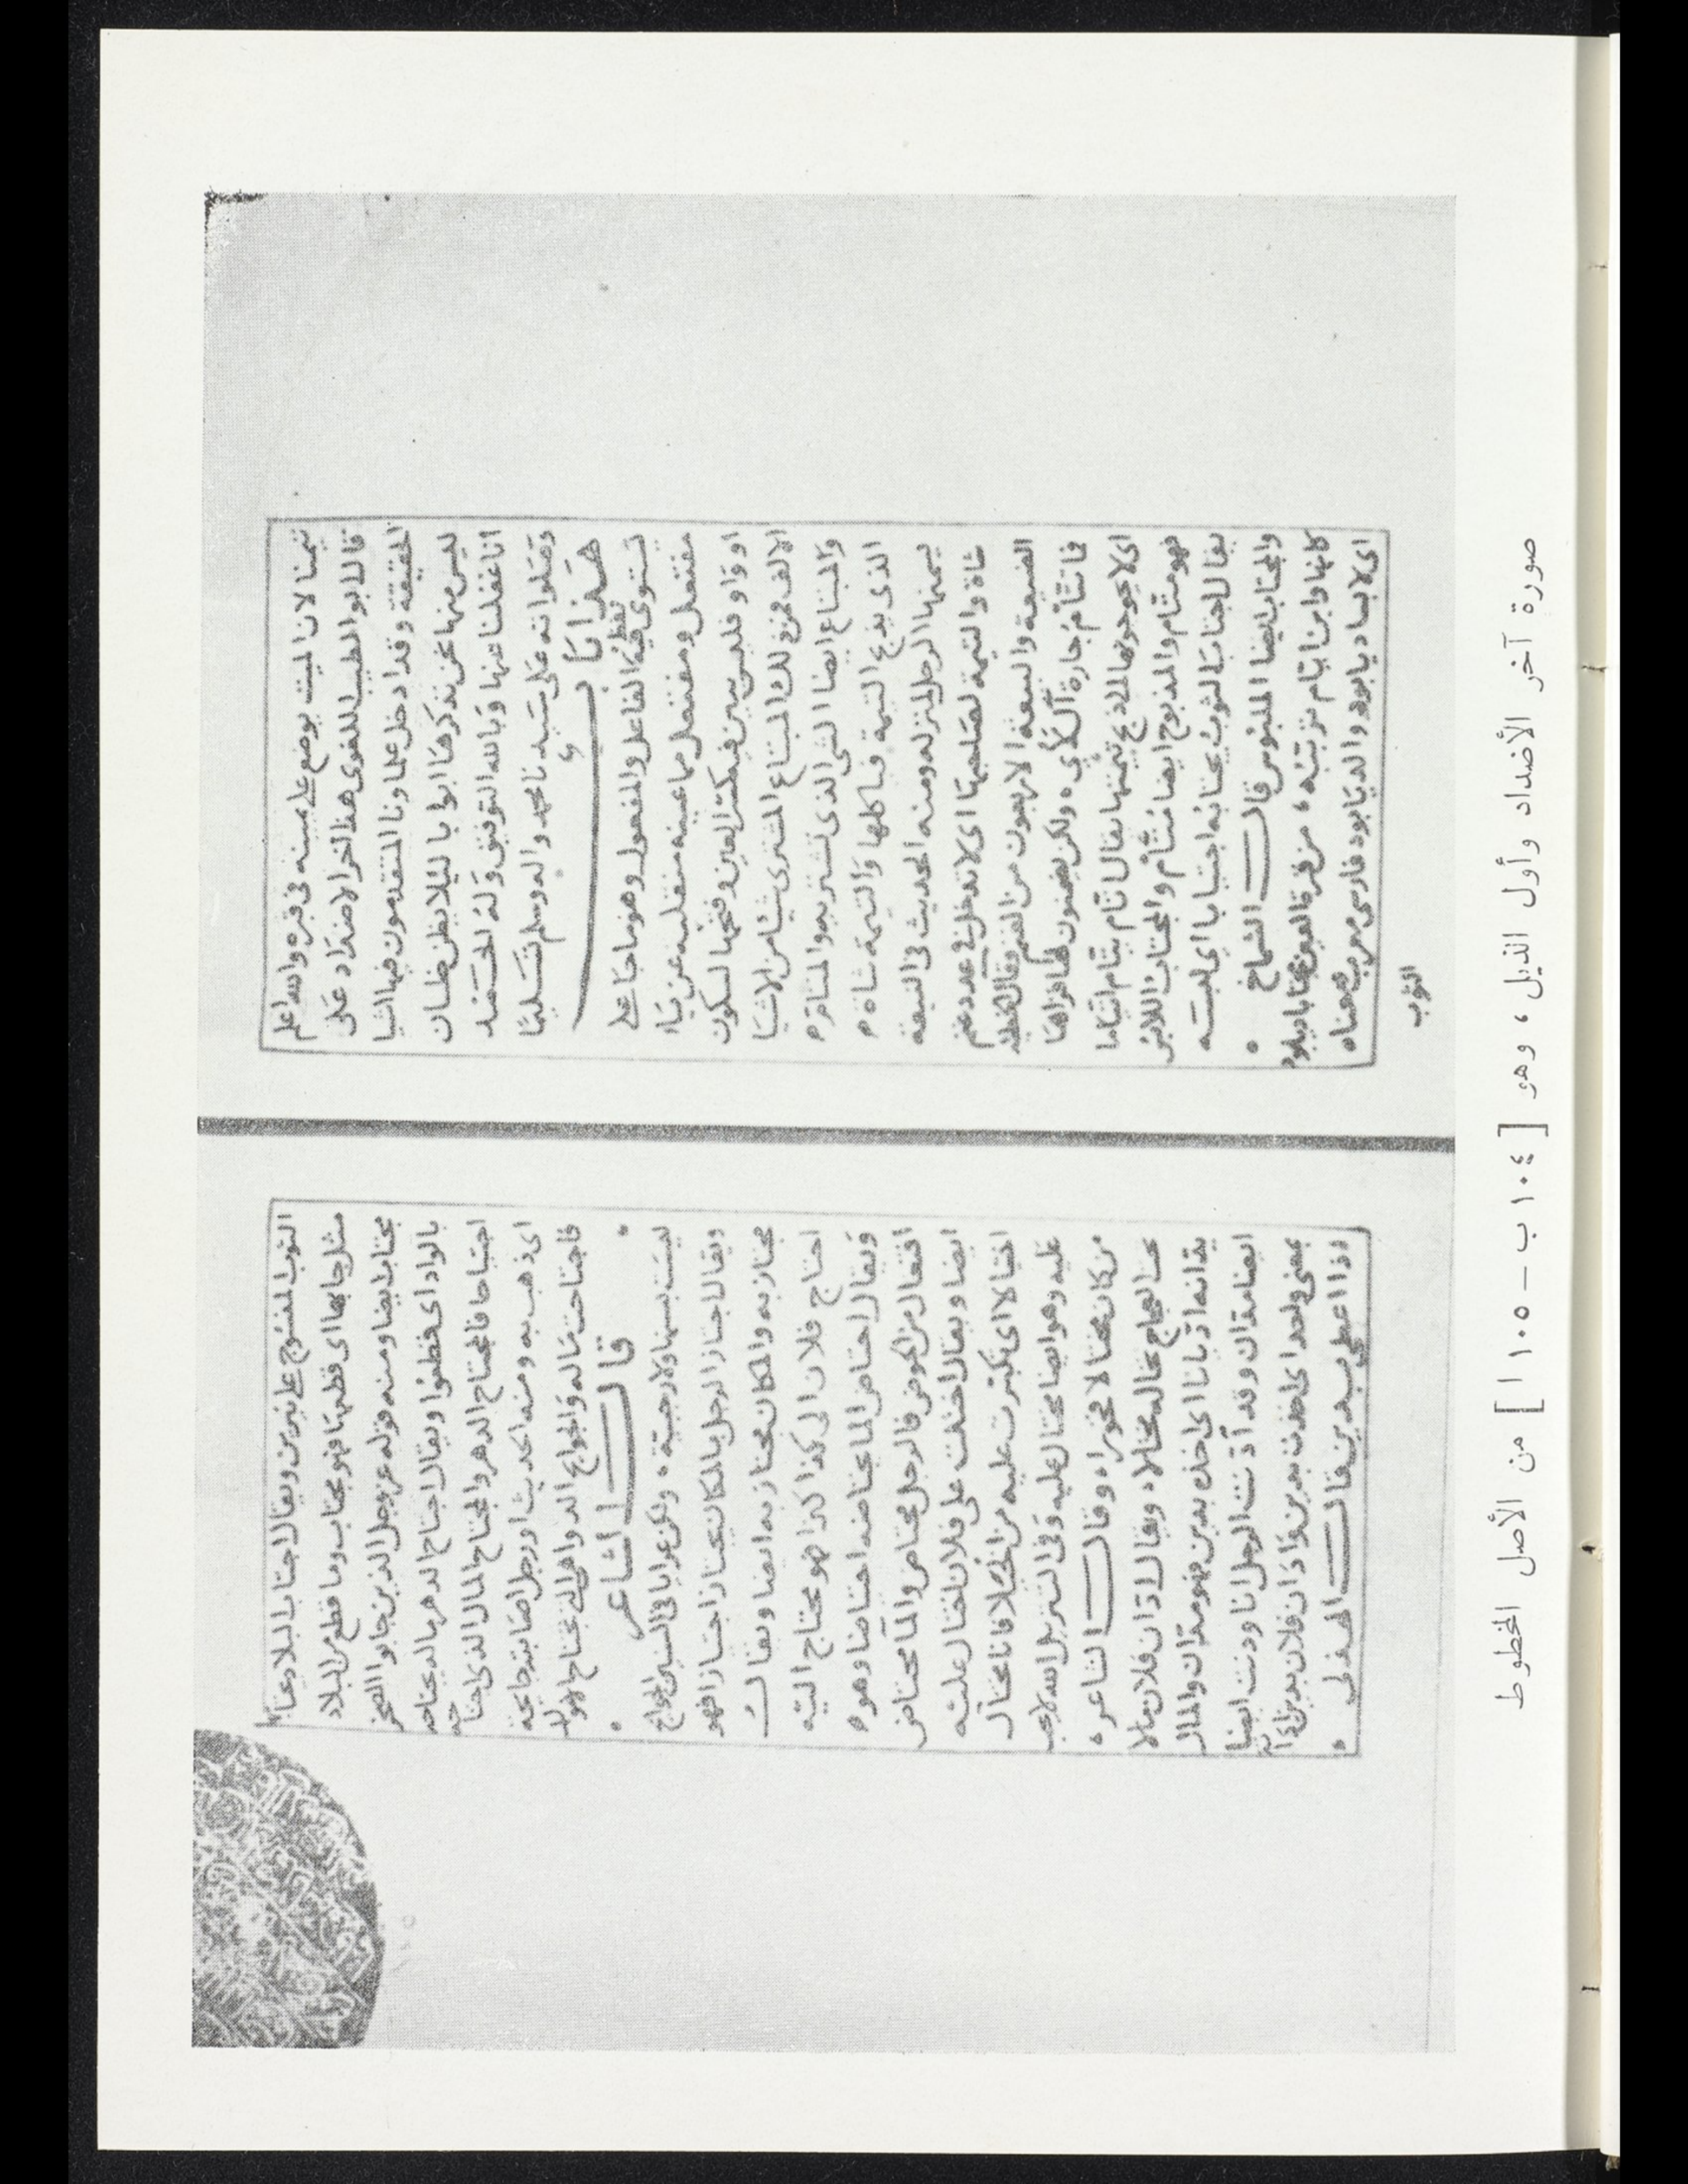 تيمنا لان الميت يوضع على يمينه فى قبره والله اعلم
قال ابو الطيب اللغوى هذا اخر الاضداد على
الحقيقة وقد ادخل علماونا المتقدمون فيها اشيا
ليس منها نحن نذكرها ابوابا ليلا يظن ظان
انا غفلنا عنها وبالله التوفيق وله الحمد
وصلواته على سيدنا محمد واله وسلم تسليما
هذا باب
تستوى فيه لفظ الفاعل والمفعول وهو ما جا على
مفتعل ومفتعل مما عينه منقلبه عن يا
او واو فليس يبين فيه كسر العين وفتحها لسكون
الالف فمن ذلك المبتاع المشترى شيا من الاشيا
والمبتاع ايضا الشى الذى تشتريه والمتام
الذى يذبح التيمة فياكلها والتيمة شاة
يسمنها الرجل لمنزله ومنه الحديث فى التيعة
شاة والتيمة لصاحبها اى لا تدخل فى عدد غنم
الصدقة والتيعة الاربعون من الغنم وقال الحطيئة
فما تتام جارة آل لأى ولكن يضمنون لها قراها
اى لا يحوجونها الى ذبح تيمتها يقال اتام يتام اتياما
فهو متام والمذبوح ايضا متام والمجتاب اللابس
يقال اجتاب الثوب يجتابه اجتيابا اى لبسه
والمجتاب ايضا الملبوس قال الشماخ
كانها وابن ايام ترببه من قرة العين مجتابا ديابود
اى لابسا ديابود والديابود فارسى معرب معناه
الثوب
الثوب المنسوج على نيرين ويقال اجتاب البلاد يجتابها
مثل جابها اى قطعها فهو مجتاب وما قطع من البلاد
مجتاب ايضا ومنه قوله عز وجل الذين جابوا الصخر
بالواد اى قطعوا ويقال اجتاح الدهر ماله يجتاحه
اجتياحا فالمجتاح الدهر والمجتاح المال الذى اجتاحه
اى ذهب به ومنه الحديث او رجل اصابته جايحة
فاجتاحت ماله والجوايح الدواهى التى تجتاح الاموال
قال الشاعر
ليست بسنها ولا رجبية ولكن عرايا فى السنين الجوايح
ويقال اجتاز الرجل بالمكان يجتاز اجتيازا فهو
مجتاز به والمكان مجتاز به ايضا ويقال
احتاج فلان الى كذا وكذا فهو محتاج اليه
ويقال اختاض الما يختاضه اختياضا وهو
افتعال من الخوض فالرجل مختاض والما مختاض
ايضا ويقال اختلت على فلان اختال عليه
اختيالا اى تكبرت عليه من الخيلا فانا مختال
عليه وهو ايضا مختال عليه وفى التنزيل ان الله لا يحب
من كان مختالا فخورا وقال الشاعر
عند الحجاج ماله مختلا ويقال ادان فلان مالا
يدانه ادّيانا اى اخذه بدين فهو مدان والمال
ايضا مدان وقد أدنت الرجل انا ودنت ايضا
بمعنى واحد اى اخذت بدين وادان فلان يدين ادانة
اذا اعطى بدين قال الهذلى
صورة آخر الأضداد وأول الذيل ، وهو [ ١٠٤ ب – ١٠٥ ا ] من الأصل المخطوط